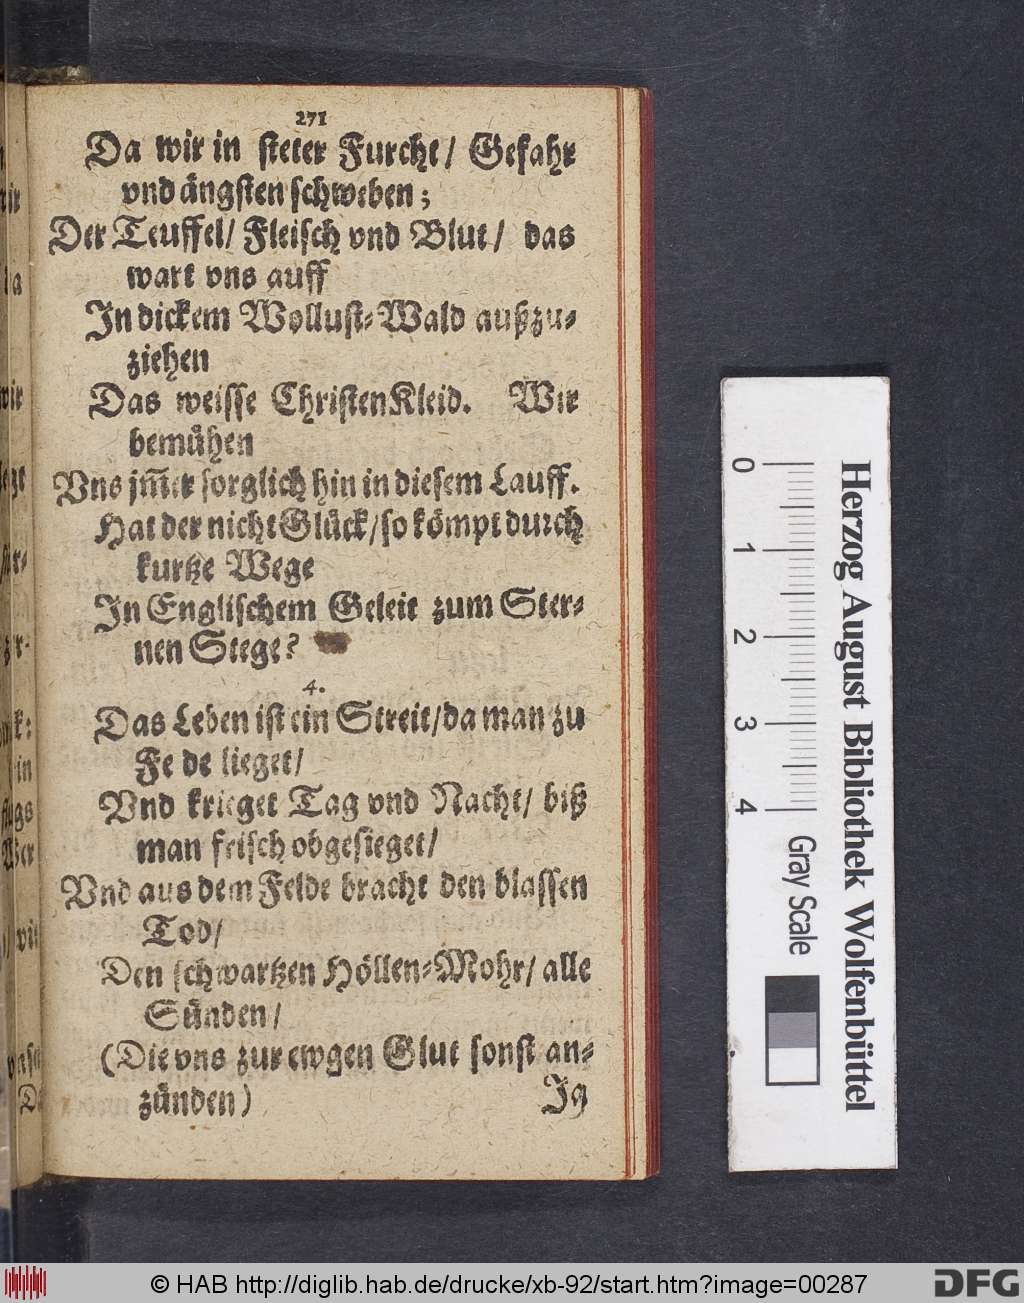 271
Da wir in steter Furcht/ Gefahr
vnd ängsten schweben;
Der Teuffel/ Fleisch vnd Blut/ das
wart vns auff
In dickem Wollust-Wald außzu-
ziehen
Das weisse ChristenKleid. Wir
bemühen
Vns jm̄er sorglich hin in diesem Lauff.
Hat der nicht Glück/ so kömpt durch
kurtze Wege
In Englischem Geleit zum Ster-
nen Stege?
4.
Das Leben ist ein Streit/ da man zu
Fe de lieget/
Vnd krieget Tag vnd Nacht/ biß
man frisch obgesieget/
Vnd aus dem Felde bracht den blassen
Tod/
Den schwartzen Höllen-Mohr/ alle
Sünden/
(Die vns zur ewgen Glut sonst an-
zünden)
Ja
0 1 2 3 4
Gray Scale
Herzog August Bibliothek Wolfenbüttel
© HAB http://diglib.hab.de/drucke/xb-92/start.htm?image=00287
DFG